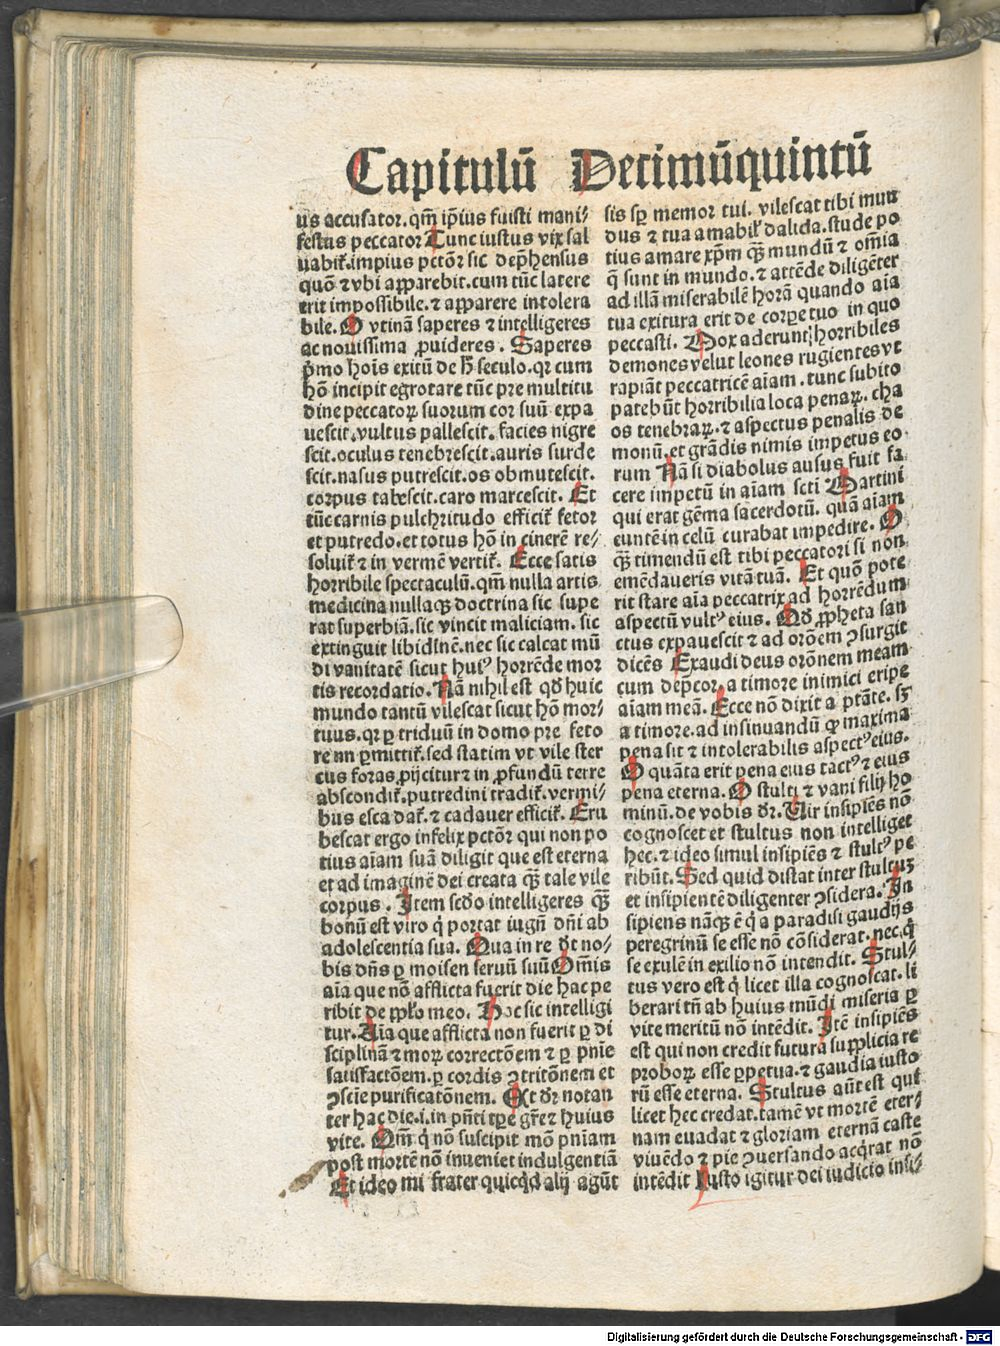 Capitulū Decimūquintū
us accusator. qm̄ ip̄ius fuisti mani⸗
festus peccator Tunc iustus vix sal
uabit᷑. impius pctōr sic dep̄hensus
quō ⁊ vbi apparebit. cum tūc latere
erit impossibile. ⁊ apparere intolera
bile. O vtinā saperes ⁊ intelligeres
ac nouissima ꝓuideres. Saperes
p̄mo hoīs exitū de h̄ seculo. qr cum
hō incipit egrotare tūc pre multitu
dine peccatoꝝ suorum cor suū expa
uescit. vultus pallescit. facies nigre
scit. oculus tenebrescit. auris surde
scit. nasus putrescit. os obmutescit.
corpus tabescit. caro marcescit. Et
tūc carnis pulchritudo efficit᷑ fetor
et putredo. et totus hō in cinerē re⸗
soluit᷑ ⁊ in vermē vertit᷑. Ecce satis
horribile spectaculū. qm̄ nulla artis
medicina nullaqꝫ doctrina sic supe
rat superbiā. sic vincit maliciam. sic
extinguit libidinē. nec sic calcat mū
di vanitatē sicut huiꝰ horrēde mor
tis recordatio. Nā nihil est qd̄ huic
mundo tantū vilescat sicut hō mor⸗
tuus. qr ꝑ triduū in domo pre feto
re nn ꝑmittit᷑. sed statim vt vile ster
cus foras ꝓijcitur ⁊ in ꝓfundū terre
abscondit᷑. putredini tradit᷑. vermi⸗
bus esca dat᷑. ⁊ cadauer efficit᷑. Eru
bescat ergo infelix pctōr qui non po
tius aīam suā diligit que est eterna
et ad imaginē dei creata qꝫ̄ tale vile
corpus. Item scd̄o intelligeres qꝫ̄
bonū est viro q̇ portat iugū dn̄i ab
adolescentia sua. Qua in re dr̄t no⸗
bis dn̄s ꝑ moisen seruū suū Om̄is
aīa que nō afflicta fuerit die hac pe
ribit de pplo meo. Hoc sic intelligi
tur. Aīa que afflicta non fuerit ꝑ di
sciplinā ⁊ moꝝ correctōem ⁊ ꝑ pn̄ie
satisfactōem. ꝑ cordis ꝯtritōnem et
ꝯscīe purificatōnem. At dr̄ notan
ter hac die. i. in pn̄ti tꝑe gr̄e ⁊ huius
vite. Qm̄ q̇ nō suscipit mō pn̄iam
post mortē nō inueniet indulgentiā
Et ideo mi frater quicq̇d alij agūt
sis sꝑ memor tui. vilescat tibi mun
dus ⁊ tua amabil᷑ dalida. stude po
tius amare xp̄m qꝫ̄ mundū ⁊ om̄ia
q̄ sunt in mundo. ⁊ attēde diligēter
ad illā miserabilē horā quando aīa
tua exitura erit de corpe tuo in quo
peccasti. Mox aderunt horribiles
demones velut leones rugientes vt
rapiāt peccatricē aīam. tunc subito
patebūt horribilia loca penaꝝ. cha
os tenebraꝝ. ⁊ aspectus penalis de
monū. et grādis nimis impetus eo
rum Nā si diabolus ausus fuit fa
cere impetū in aīam scti Martini
qui erat gēma sacerdotū. quā aīam
euntē in celū curabat impedire. O
qꝫ̄ timendū est tibi peccatori si non
emēdaueris vitā tuā. Et quō pote
rit stare aīa peccatrix ad horrēdum
aspectū vultꝰ eius. Qd̄ ꝓpheta san
ctus expauescit ⁊ ad orōem ꝯsurgit
dicēs Exaudi deus orōnem meam
cum dep̄cor. a timore inimici eripe
aīam meā. Ecce nō dixit a ptāte. sꝫ
a timore. ad insinuandū ꝙ maxima
pena sit ⁊ intolerabilis aspectꝰ eius.
O quāta erit pena eius tactꝰ ⁊ eius
pena eterna. O stulti ⁊ vani filij ho
minū. de vobis dr̄. Uir insipiēs nō
cognoscet et stultus non intelliget
hec. ⁊ ideo simul insipiēs ⁊ stultꝰ pe
ribūt. Sed quid distat inter stultuꝫ
et insipientē diligenter ꝯsidera. In
sipiens nāqꝫ ē q̇ a paradisi gaudijs
peregrinū se esse nō cōsiderat. nec q̇
se exulē in exilio nō intendit. Stul⸗
tus vero est q̇ licet illa cognoscat. li
berari tn̄ ab huius mūdi miseria ꝑ
vite meritū nō intēdit. Itē insipiēs
est qui non credit futura supplicia re
proboꝝ esse ꝑpetua. ⁊ gaudia iusto
rū esse eterna. Stultus aūt est qui
licet hec credat. tamē vt mortē eter⸗
nam euadat ⁊ gloriam eternā caste
viuēdo ⁊ pie ꝯuersando acq̇rat nō
intēdit Iusto igitur dei iudicio insi⸗
Digitalisierung gefördert durch die Deutsche Forschungsgemeinschaft - DFG